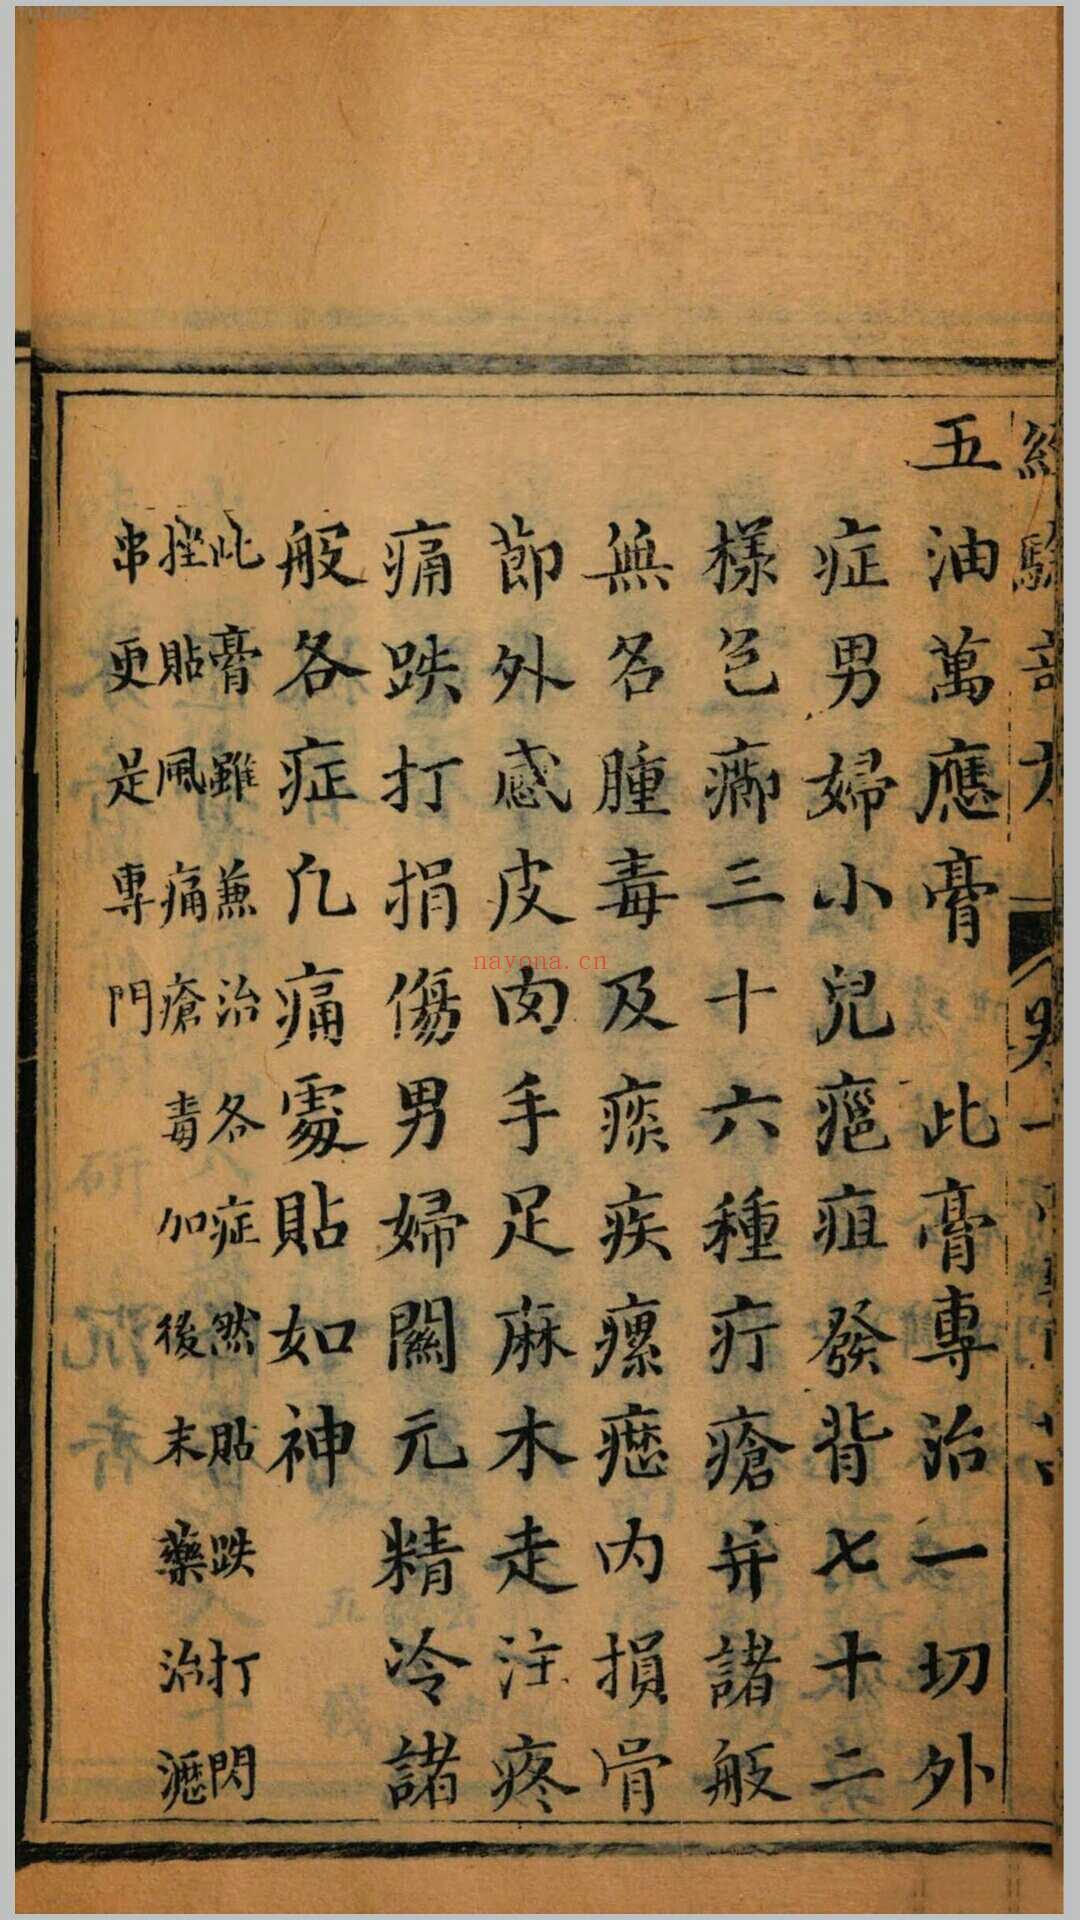 五油萬應膏 此膏專治一切外
症男婦小兒瘟疽發背七十二
樣色癤三十六種疔瘡并諸般
無名腫毒及痰疾瘰癧內損骨
節外感皮肉手足麻木走注疼
痛跌打捐傷男婦關元精冷諸
般各症凢痛處貼如神
此膏雖兼治各症然貼跌打閃
挫貼風痛瘡毒加後末藥治瀝
串更是專門
nayona.cn